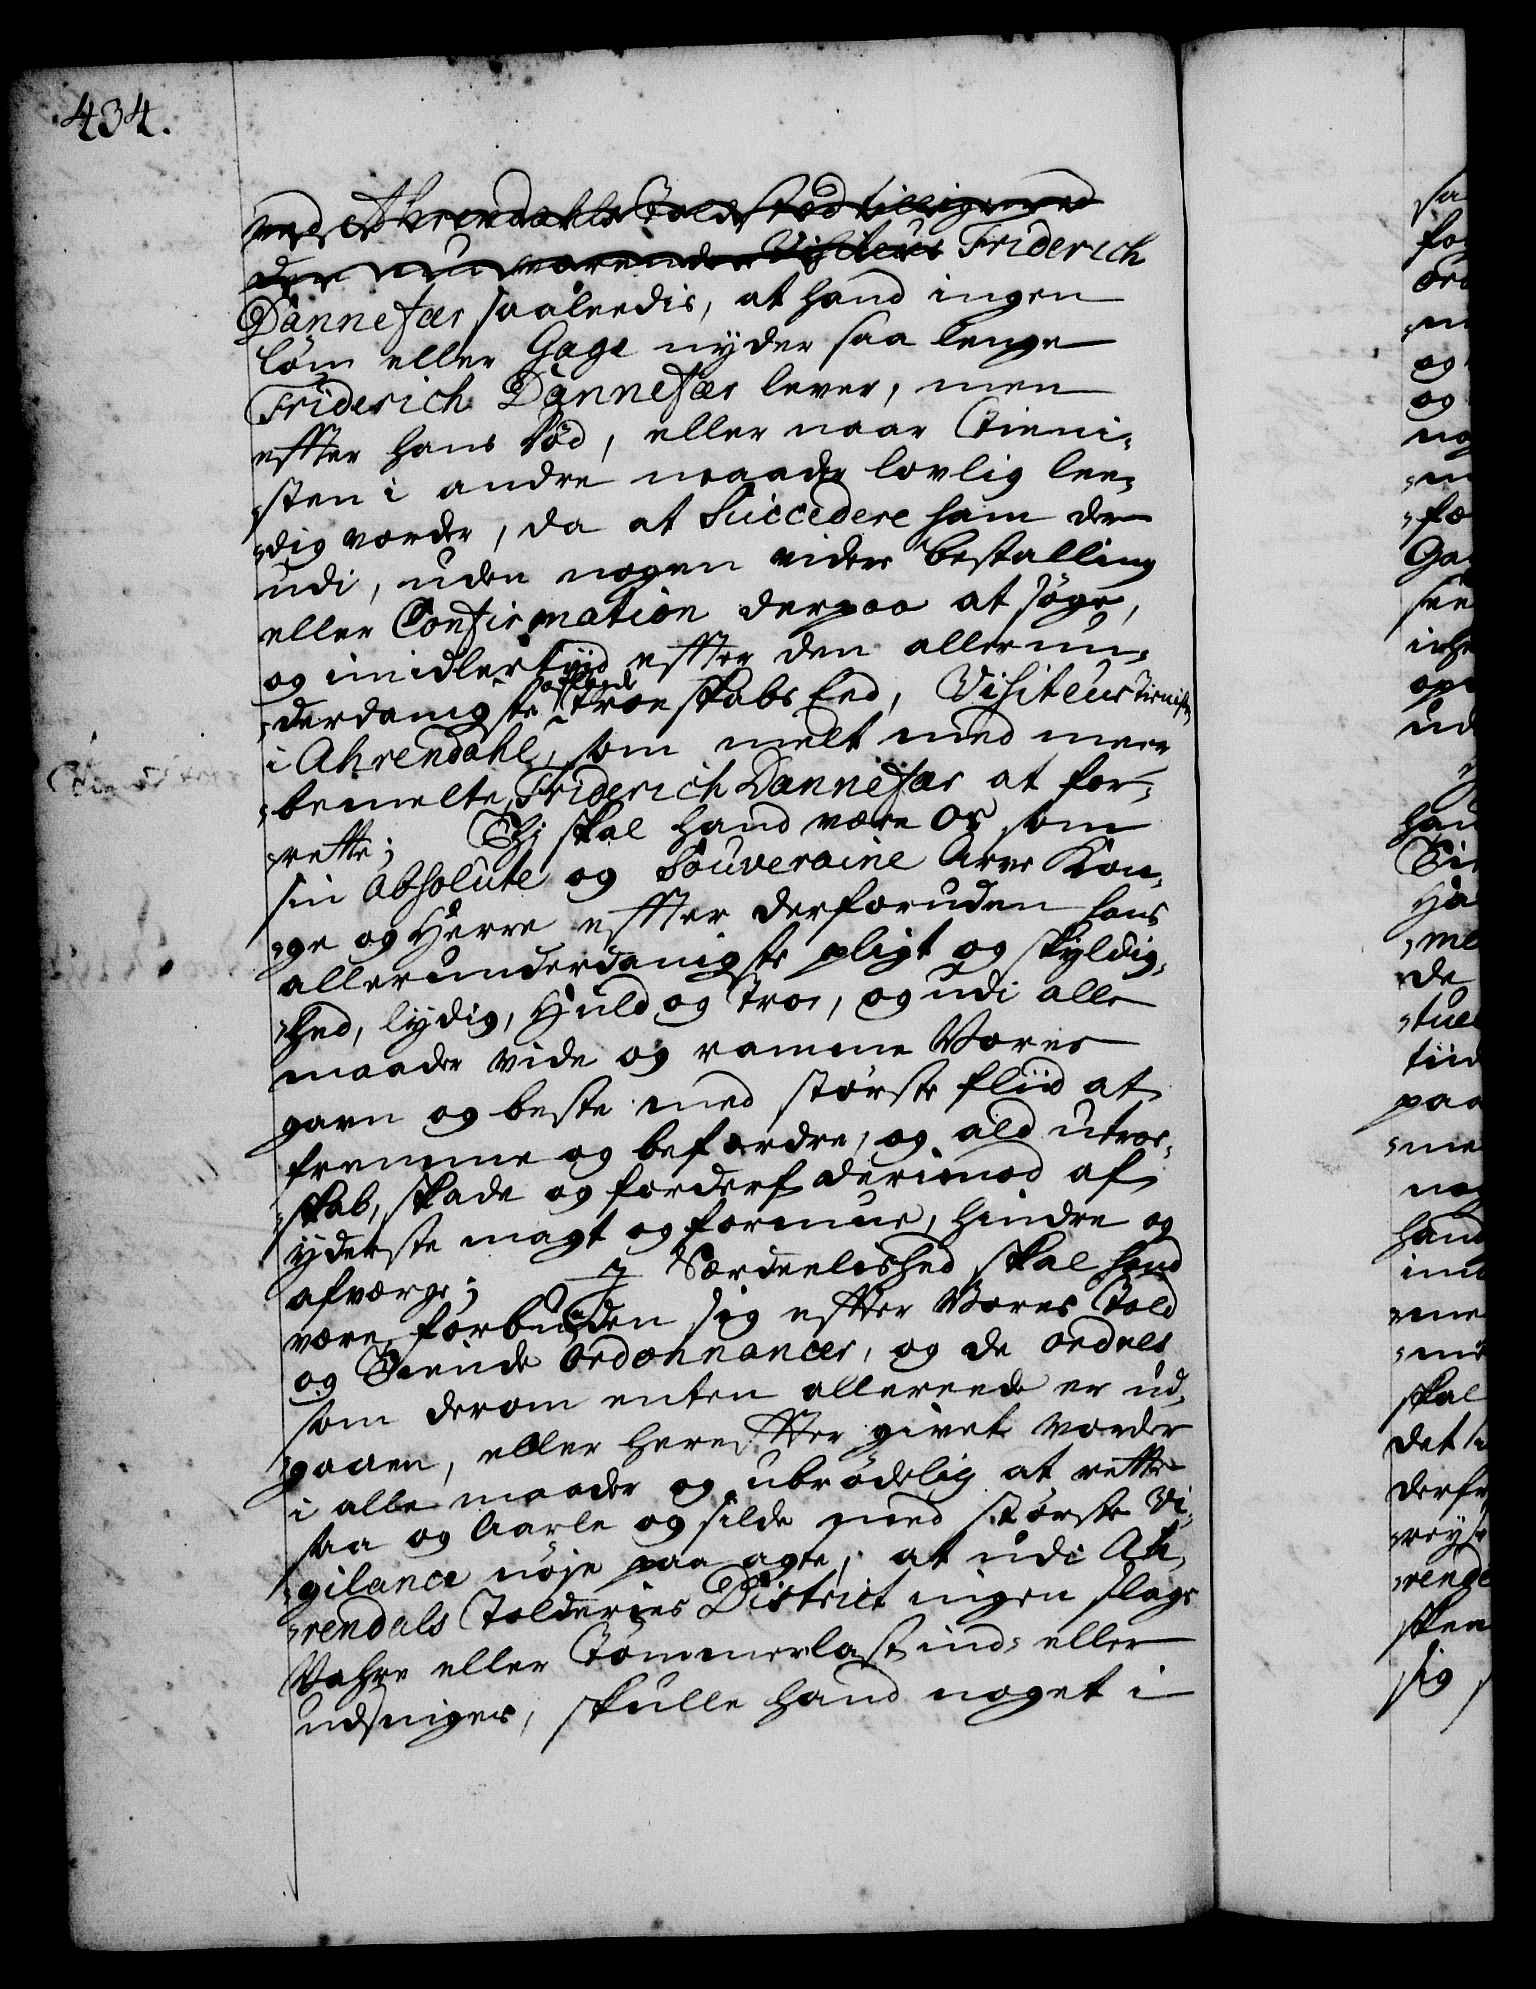 434.
ved Ahrendahls Told stæd tilligemed
den nu værende Visiteur Friderich
Dannefær saaleedis, at hand ingen
løn eller Gage nyder saa lenge
Friderich Dannefær lever, men
effter hans død, eller naar Tieni-
sten i andre maader lovlig lee-
dig vorder, da at Succedere ham der
udi, uden nogen videre bestalling
eller Confirmation derpaa at søge,
og imidlertiid effter den allerun-
derdanigste aflagde Troeskabs Eed, Visiteur Tienisten
i Ahrendahl, som melt med meer
bemelte Friderich Dannefær at for-
rette; Thj skal hand være Os som
sin Absolute og Souveraine Arve Kon-
ge og Herre effter derforuden hans
allerunderdanigste pligt og skyldig-
hed, lydig, Huld og Troe, og udi alle
maader vide og ramme Vores
gavn og beste med største fliid at
fremme og befordre, og ald utroe-
skab, skade og forderf derimod af
yderste magt og formue, hindre og
afværge; I Særdeelished skal hand
være forbunden sig effter Vores Told
og Tiende Ordonnancer, og de ordres
som derom enten allereede er ud-
gaaen, eller hereffter givet vorder
i alle maader og ubrødelig at rette
saa og Aarle og silde med største Vi-
gilance nøje paa agte, at udi Ah-
rendals Tolderies District ingen slags
Vahre eller Tømmerlast ind- eller
udsniges, skulle hand noget i